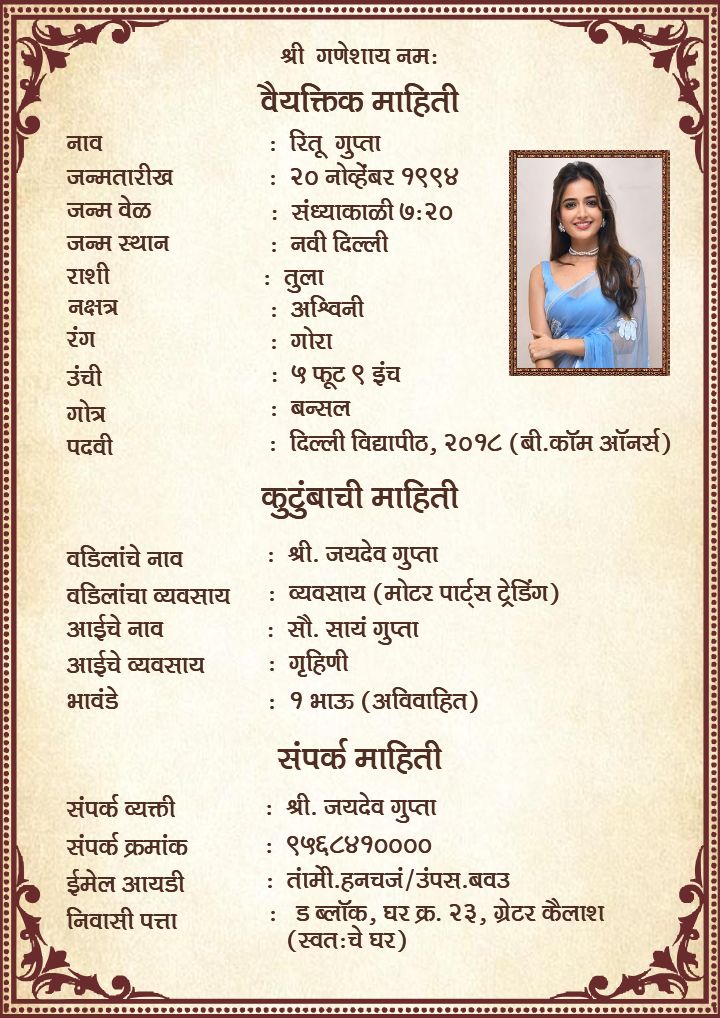 श्री गणेशाय नम:
वैयक्तिक माहिती
नाव : रितू गुप्ता
जन्मतारीख : २० नोव्हेंबर १९९४
जन्म वेळ : संध्याकाळी ७:२०
जन्म स्थान : नवी दिल्ली
राशी : तुला
नक्षत्र : अश्विनी
रंग : गोरा
उंची : ५ फूट ९ इंच
गोत्र : बन्सल
पदवी : दिल्ली विद्यापीठ, २०१८ (बी.कॉम ऑनर्स)
कुटुंबाची माहिती
वडिलांचे नाव : श्री. जयदेव गुप्ता
वडिलांचा व्यवसाय : व्यवसाय (मोटर पार्ट्स ट्रेडिंग)
आईचे नाव : सौ. सायं गुप्ता
आईचे व्यवसाय : गृहिणी
भावंडे : १ भाऊ (अविवाहित)
संपर्क माहिती
संपर्क व्यक्ती : श्री. जयदेव गुप्ता
संपर्क क्रमांक : ९५६८४१००००
ईमेल आयडी : तांमेी.हनचजं/उंपस.बवउ
निवासी पत्ता : ड ब्लॉक, घर क्र. २३, ग्रेटर कैलाश
(स्वत:चे घर)